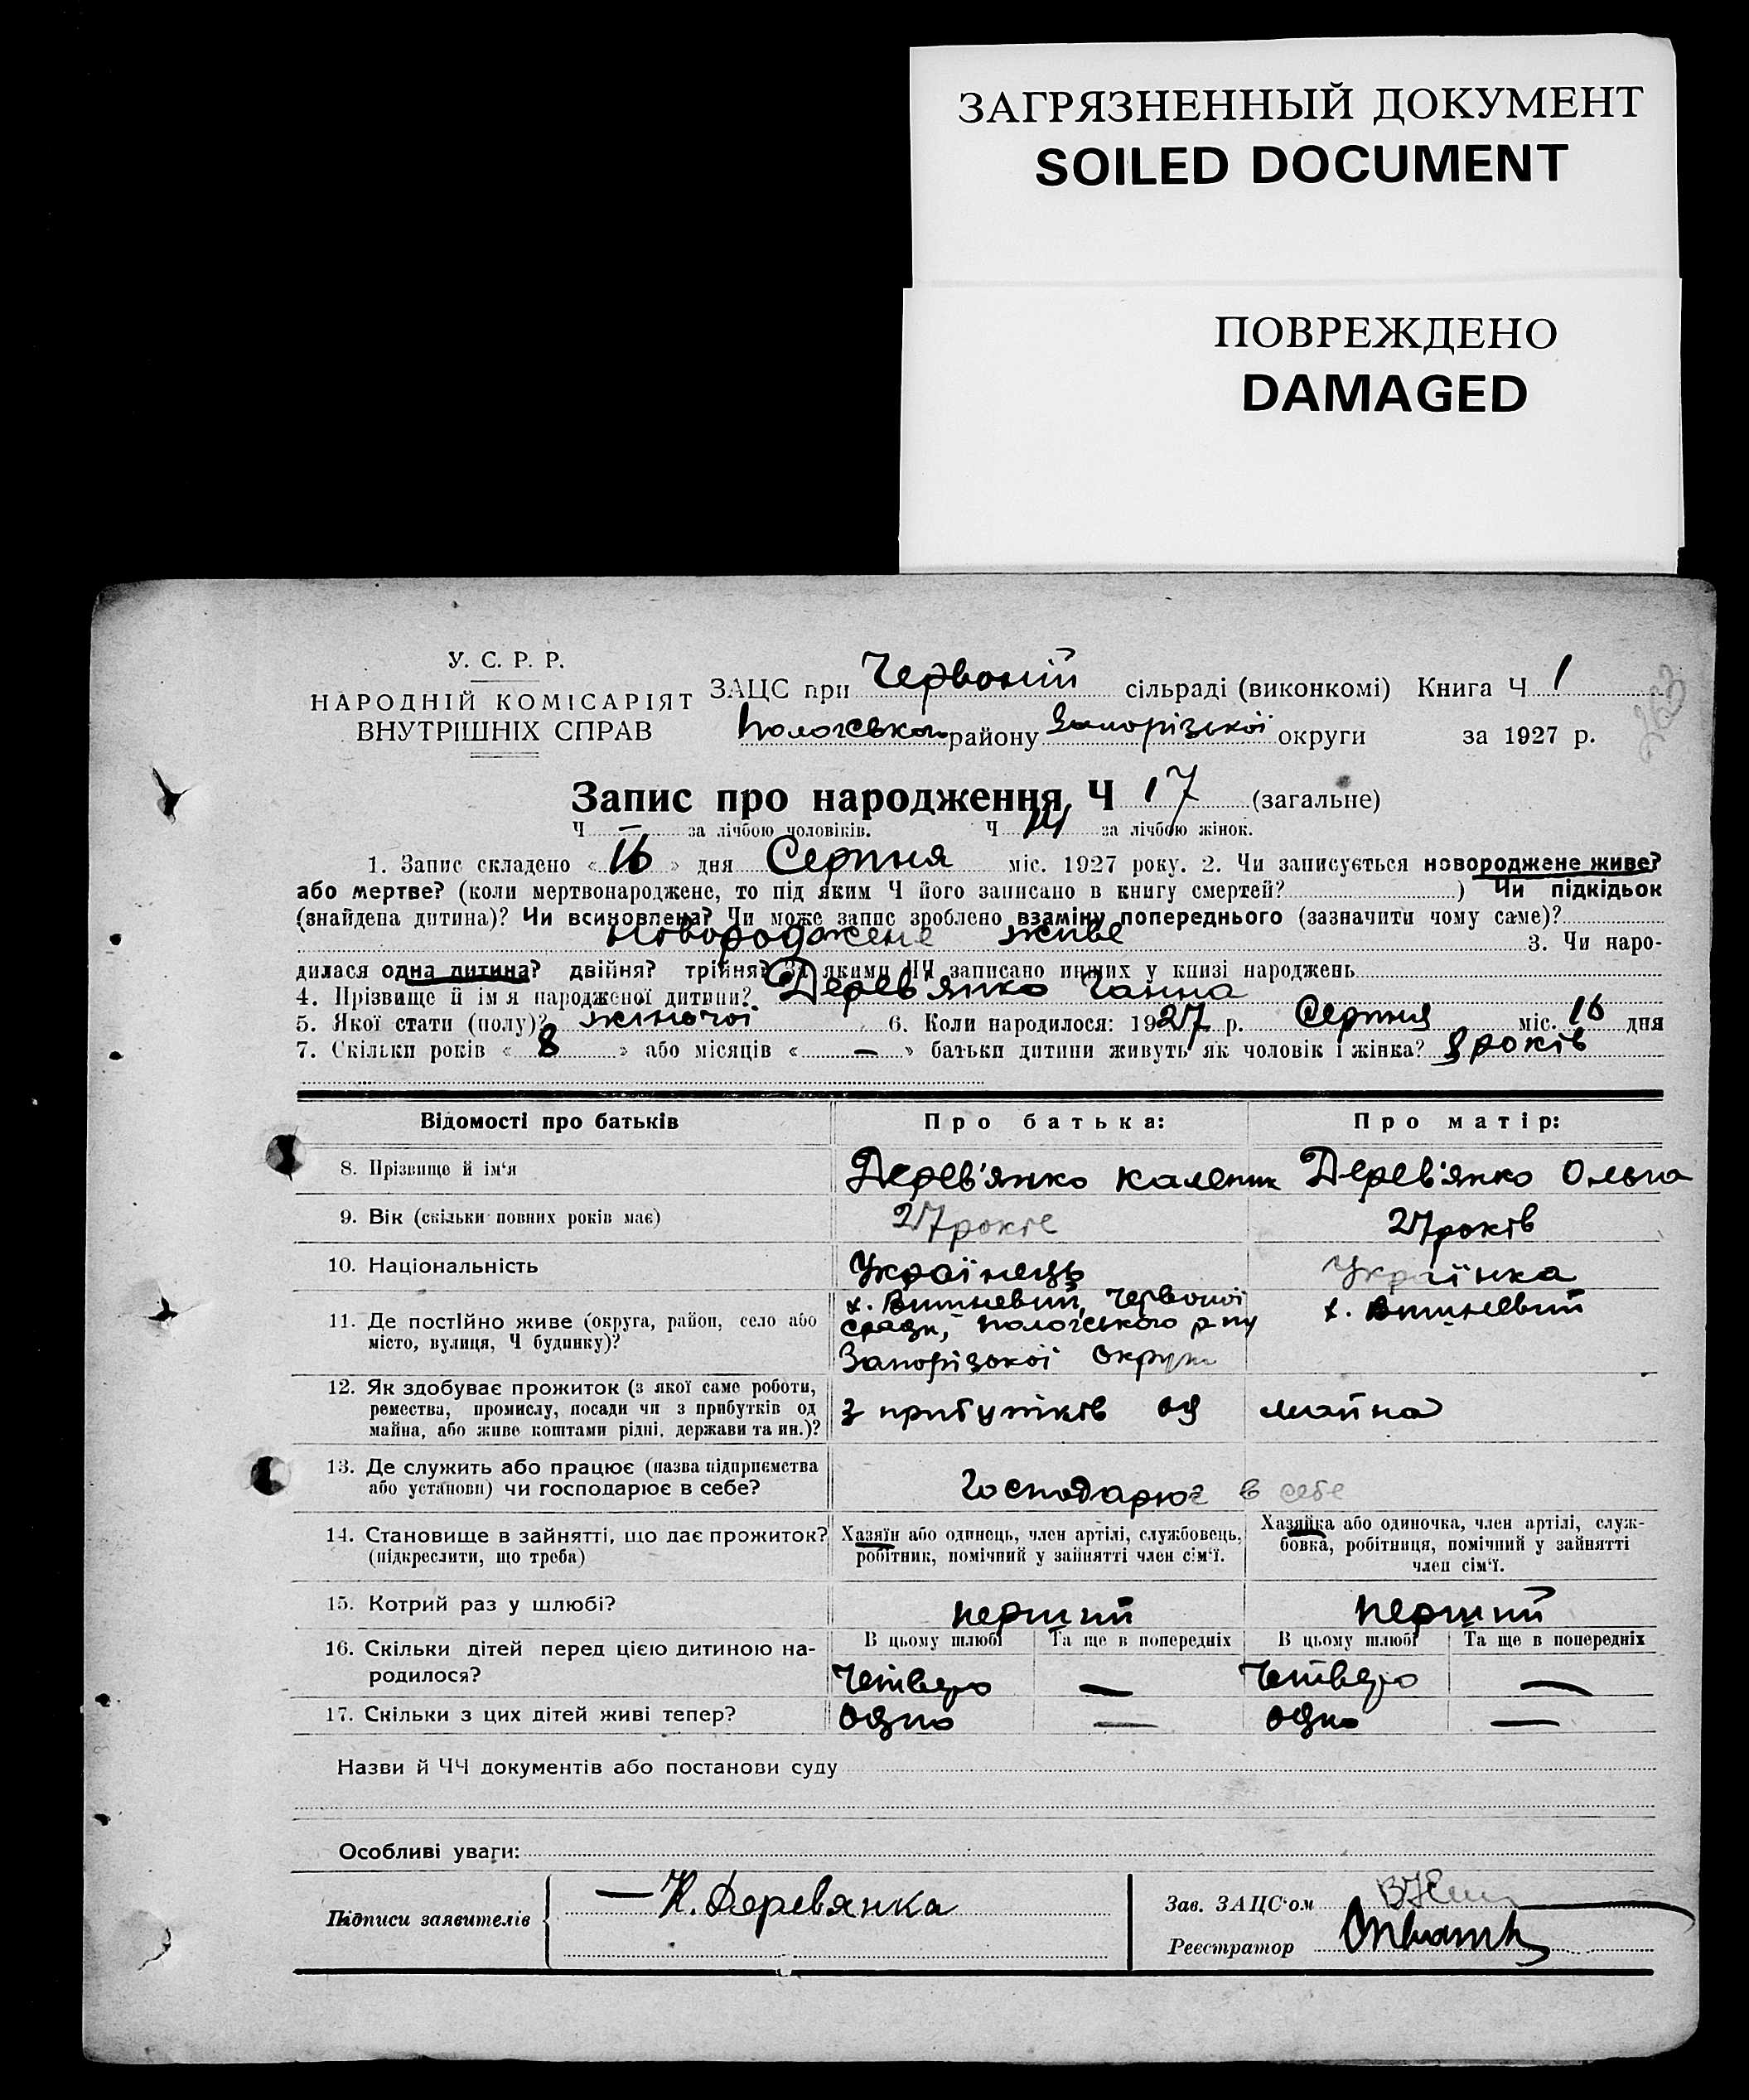 ЗАГРЯЗНЕННЫЙ ДОКУМЕНТ
SOILED DOCUMENT
ПОВРЕЖДЕНО
DAMAGED
У. С. Р. Р.
НАРОДНІЙ КОМІСАРІЯТ
ВНУТРІШНІХ СПРАВ
ЗАЦС при Червоній сільраді (виконкомі) Книга Ч 1
Пологського району Запорізької округи за 1927 р.
263
Запис про народження Ч 17 (загальне)
Ч — за лічбою чоловіків. Ч за лічбою жінок.
1. Запис складено «16» дня Серпня міс. 1927 року. 2. Чи записується новороджене живе?
або мертве? (коли мертвонароджене, то під яким Ч його записано в книгу смертей? ) Чи підкідьок
(знайдена дитина)? Чи всиновлена? Чи може запис зроблено взаміну попереднього (зазначити чому саме)?
Новороджене живе 3. Чи наро-
дилася одна дитина? двійня? трійня? За якими ЧЧ записано инших у книзі народжень
4. Прізвище й ім'я народженої дитини? Дерев'янко Ганна
5. Якої стати (полу)? жіночої 6. Коли народилося: 1927 р. Серпня міс. 16 дня
7. Скільки років «8» або місяців «—» батьки дитини живуть як чоловік і жінка? 8 років
Відомості про батьків Про батька: Про матір:
8. Прізвище й ім'я Дерев'янко Каленик Дерев'янко Ольга
9. Вік (скільки повних років має) 27 років 27 років
10. Національність Українець Українка
11. Де постійно живе (округа, район, село або місто, вулиця, Ч будинку)?
х. Вишневий, Червоної
сради, Пологського р-ну
Запорізької Округи
х. Вишневий
12. Як здобуває прожиток (з якої саме роботи,
ремества, промислу, посади чи з прибутків од
майна, або живе коштами рідні, держави та ин.)?
з прибутків од майна
13. Де служить або працює (назва підприємства
або установи) чи господарює в себе?
Господарює в себе
14. Становище в зайнятті, що дає прожиток?
(підкреслити, що треба)
Хазяїн або одинець, член артілі, службовець,
робітник, помічний у зайнятті член сім'ї.
Хазяйка або одиночка, член артілі, служ-
бовка, робітниця, помічний у зайнятті
член сім'ї.
15. Котрий раз у шлюбі? перший перший
16. Скільки дітей перед цією дитиною на-
родилося?
В цьому шлюбі Та ще в попередніх В цьому шлюбі Та ще в попередніх
Четверо — Четверо —
17. Скільки з цих дітей живі тепер? одно — одно —
Назви й ЧЧ документів або постанови суду
Особливі уваги:
Підписи заявителів — К. Деревянка
Зав. ЗАЦС'ом
Реєстратор